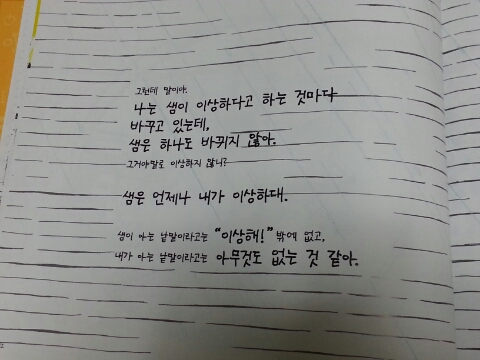 그런데 말이야.
나는 샘이 이상하다고 하는 것마다
바꾸고 있는데,
샘은 하나도 바뀌지 않아.
그거야말로 이상하지 않니?
샘은 언제나 내가 이상하대.
샘이 아는 낱말이라고는 “이상해!” 밖에 없고,
내가 아는 낱말이라고는 아무것도 없는 것 같아.